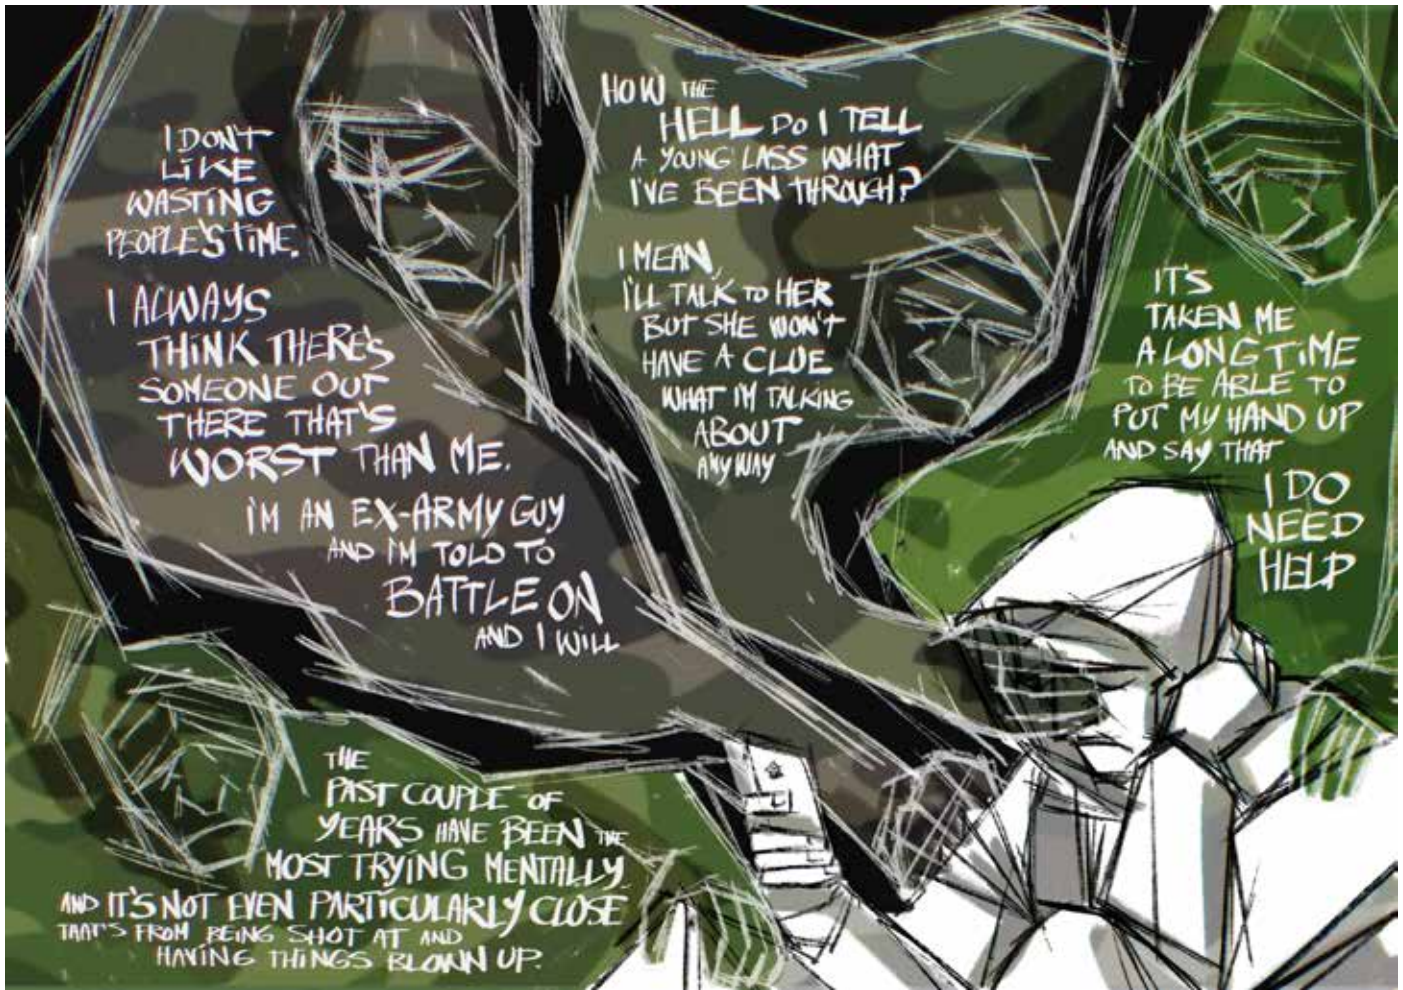 I DON'T
LIKE
WASTING
PEOPLE'S TIME.
I ALWAYS
THINK THERE'S
SOMEONE OUT
THERE THAT'S
WORST THAN ME.
I'M AN EX-ARMY GUY
AND I'M TOLD TO
BATTLE ON
AND I WILL
HOW THE
HELL DO I TELL
A YOUNG LASS WHAT
I'VE BEEN THROUGH?
I MEAN,
I'LL TALK TO HER
BUT SHE WON'T
HAVE A CLUE
WHAT I'M TALKING
ABOUT
ANYWAY
IT'S
TAKEN ME
A LONG TIME
TO BE ABLE TO
PUT MY HAND UP
AND SAY THAT
I DO
NEED
HELP
THE
PAST COUPLE OF
YEARS HAVE BEEN THE
MOST TRYING MENTALLY
AND IT'S NOT EVEN PARTICULARLY CLOSE
THAT'S FROM BEING SHOT AT AND
HAVING THINGS BLOWN UP.